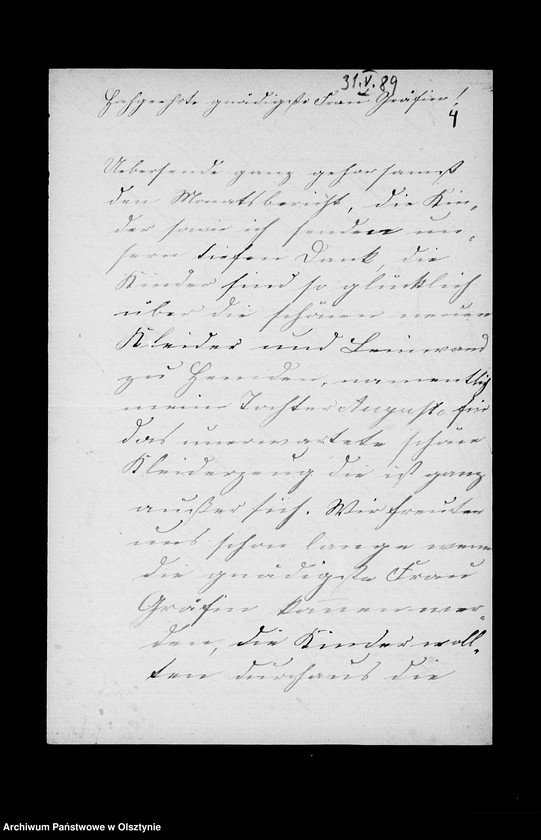 31.V.89
Hochgeehrte gnädigste Frau Gräfin!
4
Uebersende ganz gehorsamst
den Monatsbericht, die Kin-
der sowie ich senden un-
sern tiefen Dank, die
Kinder sind so glücklich
über die schönen neuen
Kleider und Leinwand
zu Hemden, namentlich
meine Tochter Auguste für
das unerwartete schöne
Kleiderzeug die ist ganz
außer sich. Wir freuten
uns schon lange wenn
die gnädigste Frau
Gräfin kommen wer-
den, die Kinder woll-
ten durchaus die
Archiwum Państwowe w Olsztynie